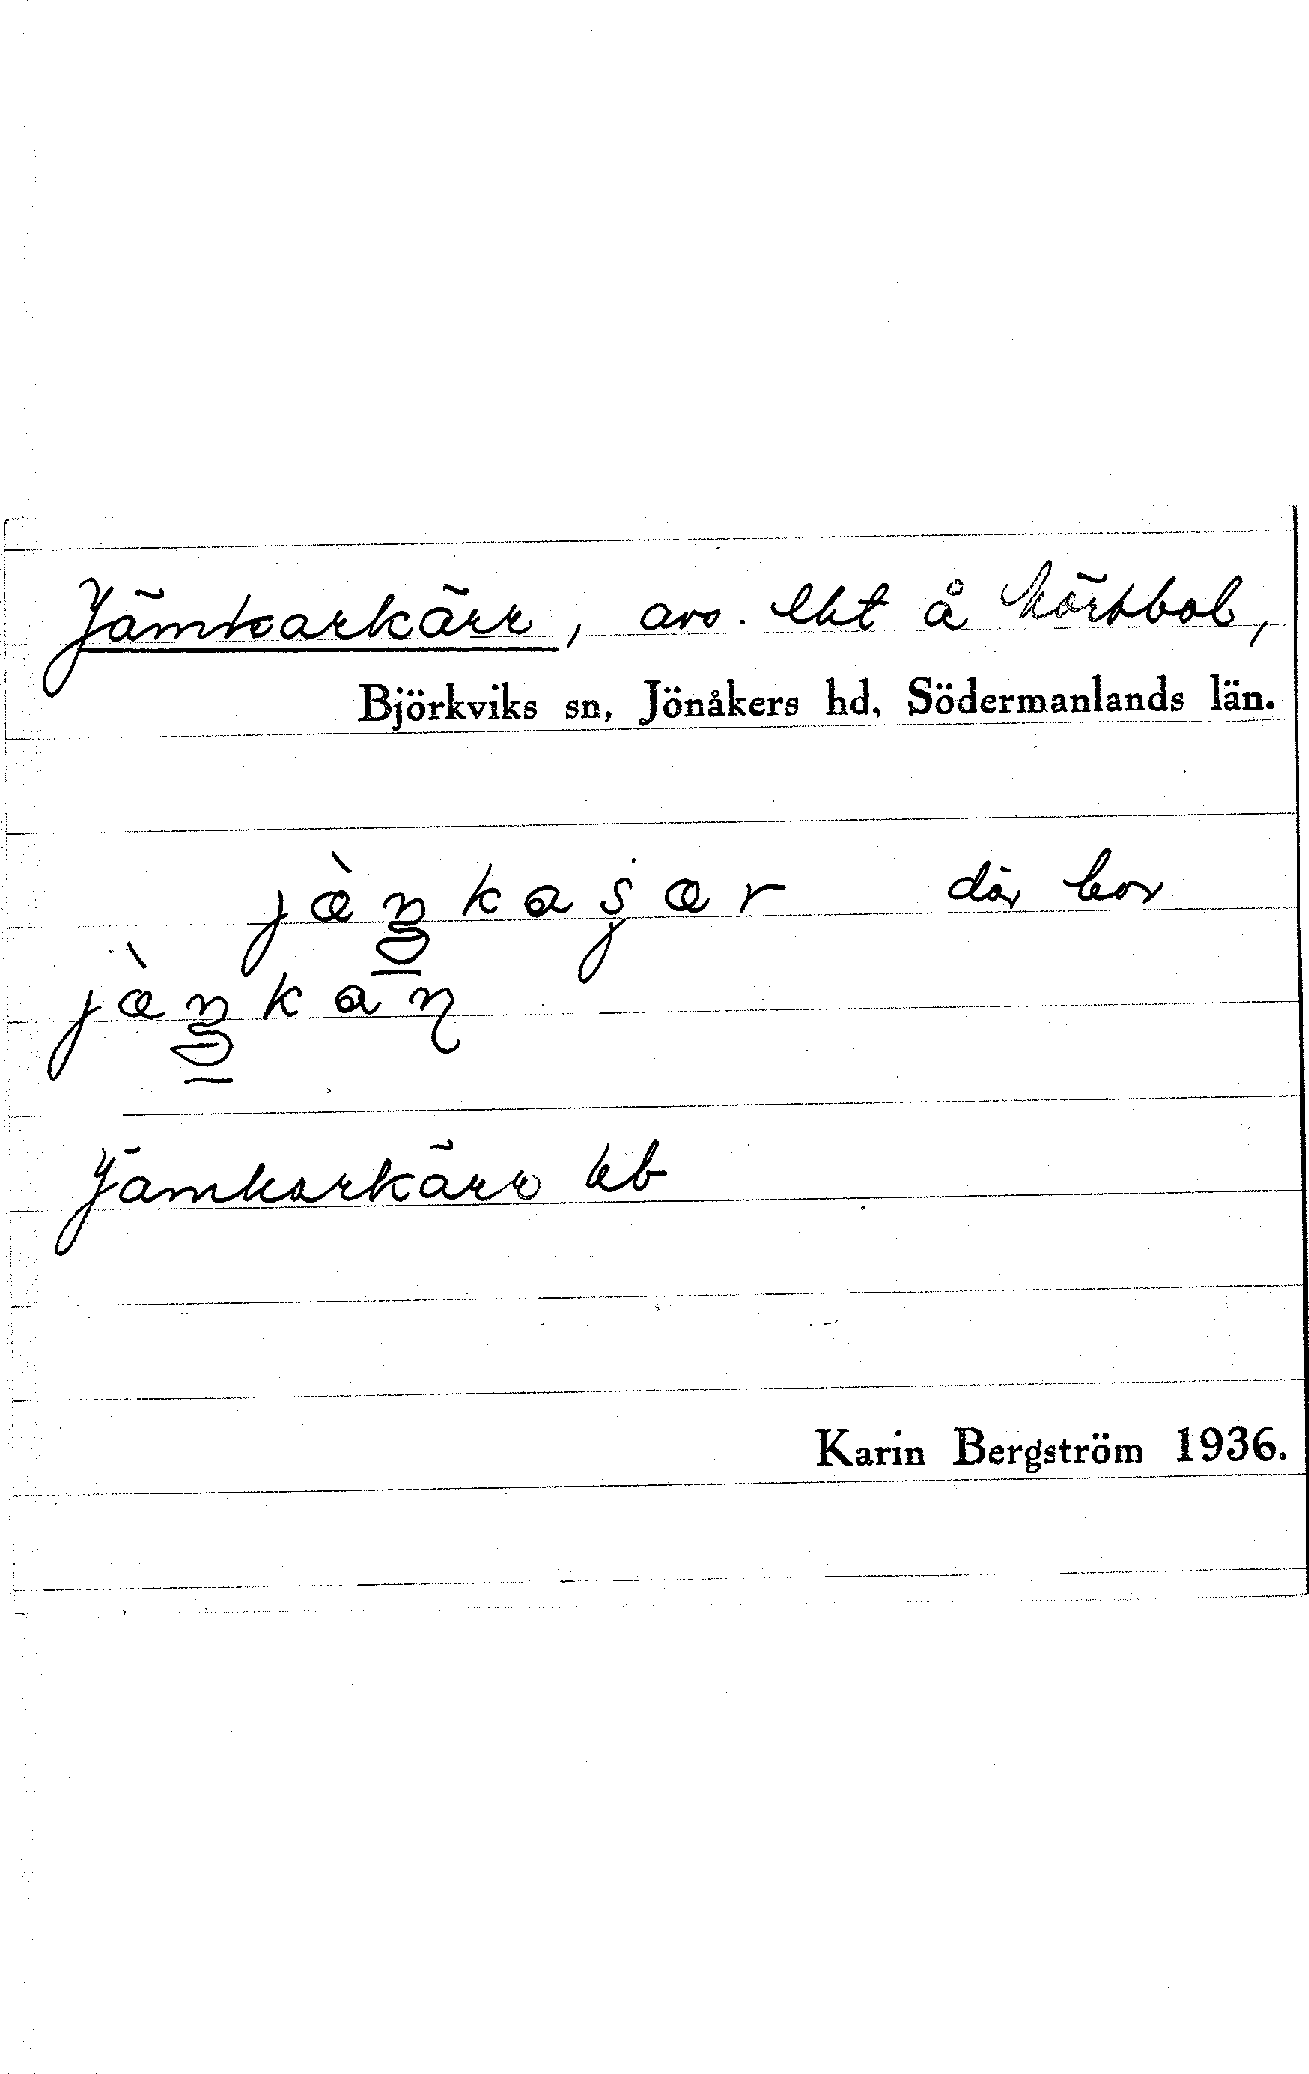 Jämkarkärr, avs. lht å Mörtbol,
Björkviks sn, Jönåkers hd, Södermanlands län.
där bor
Jämkarkärr kb
Karin Bergström 1936.